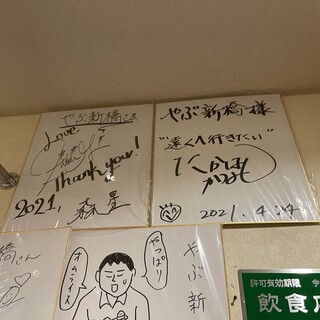 やぶ新橋さん
Love
Thank you!
2021,
森 星
やぶ新橋様
"遠くへ行きたい"
2021.4.24
橋さん
やっぱり
オムライス
やぶ新
許可有効期限 令
飲食店